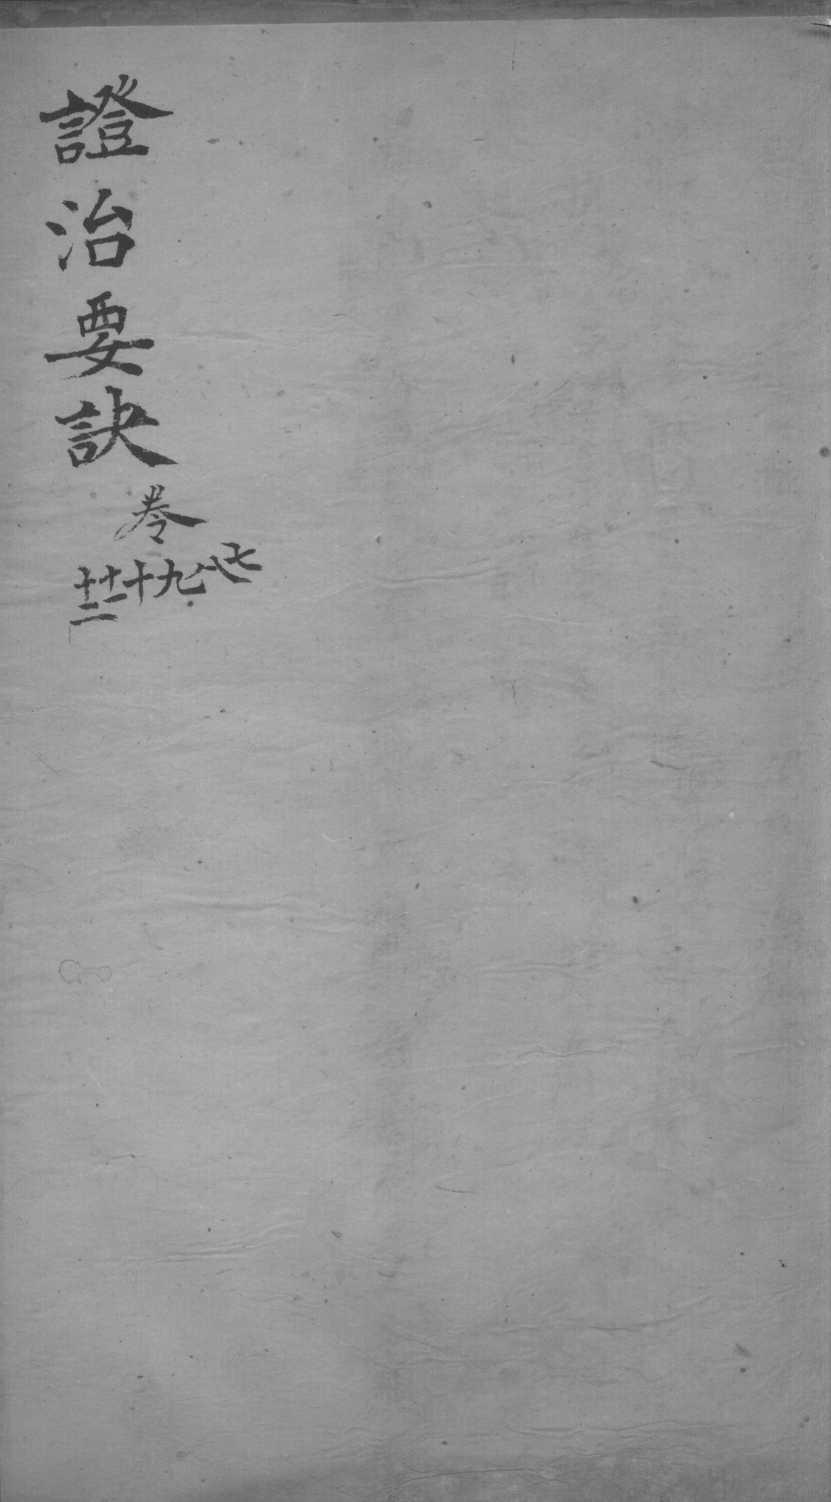 證治要訣
卷
七
八
九
十
十一
十二